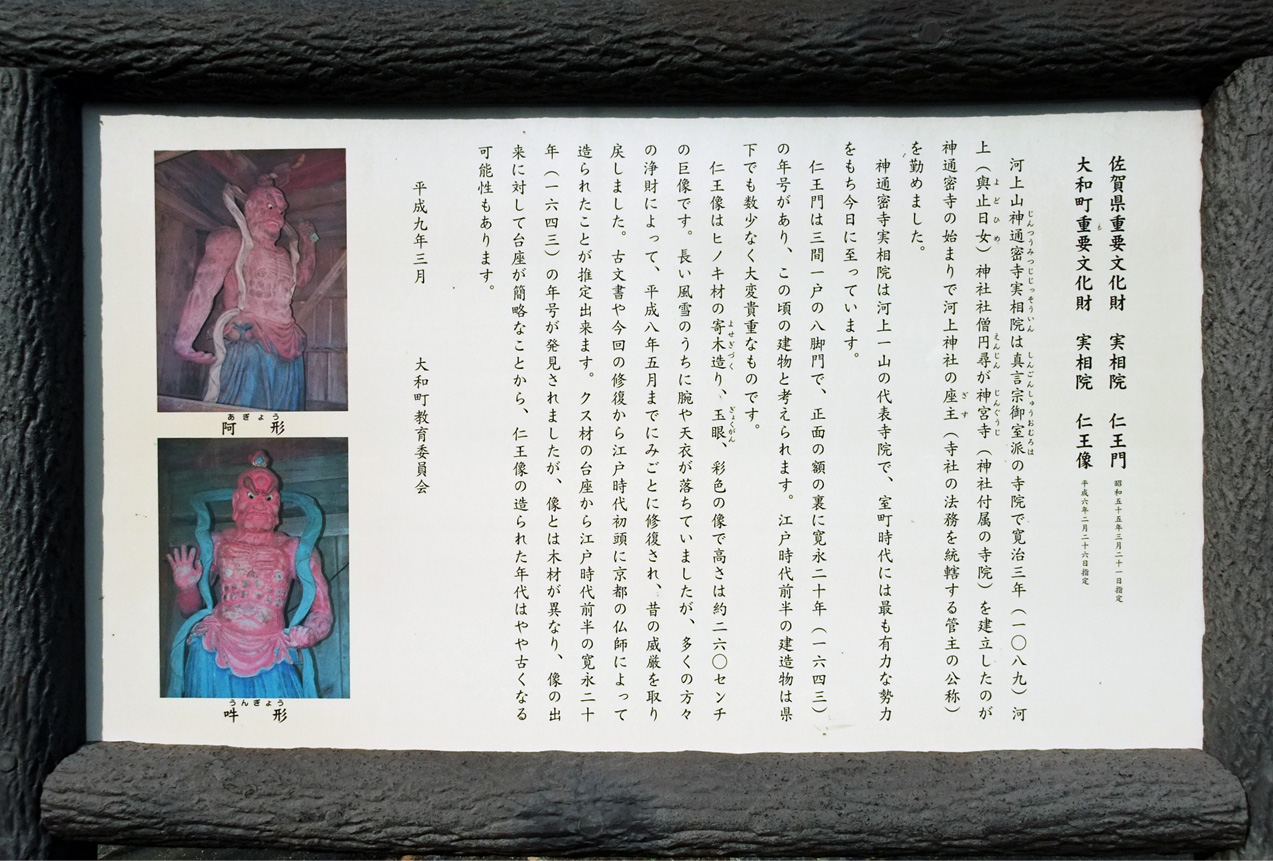 佐賀県重要文化財　実相院　仁王門　昭和五十五年三月二十一日指定
大和町重要文化財　実相院　仁王像　平成六年二月二十六日指定
河上山神通密寺実相院は真言宗御室派の寺院で寛治三年（一〇八九）河
上（與止日女）神社社僧円尋が神宮寺（神社付属の寺院）を建立したのが
神通密寺の始まりで河上神社の座主（寺社の法務を統轄する管主の公称）
を勤めました。
神通密寺実相院は河上一山の代表寺院で、室町時代には最も有力な勢力
をもち今日に至っています。
仁王門は三間一戸の八脚門で、正面の額の裏に寛永二十年（一六四三）
の年号があり、この頃の建物と考えられます。江戸時代前半の建造物は県
下でも数少なく大変貴重なものです。
仁王像はヒノキ材の寄木造り、玉眼、彩色の像で高さは約二六〇センチ
の巨像です。長い風雪のうちに腕や天衣が落ちていましたが、多くの方々
の浄財によって、平成八年五月までにみごとに修復され、昔の威厳を取り
戻しました。古文書や今回の修復から江戸時代初頭に京都の仏師によって
造られたことが推定出来ます。クス材の台座から江戸時代前半の寛永二十
年（一六四三）の年号が発見されましたが、像とは木材が異なり、像の出
来に対して台座が簡略なことから、仁王像の造られた年代はやや古くなる
可能性もあります。
平成九年三月　大和町教育委員会
あぎょう
阿形
うんぎょう
吽形